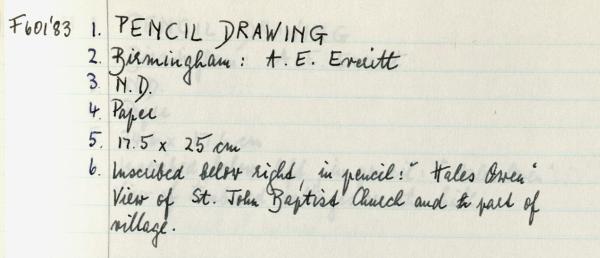 F601'83 1. PENCIL DRAWING
2. Birmingham: A. E. Everitt
3. N.D.
4. Paper
5. 17.5 x 25 cm
6. Inscribed below right, in pencil: "Hales Owen"
View of St. John Baptist Church and part of
village.